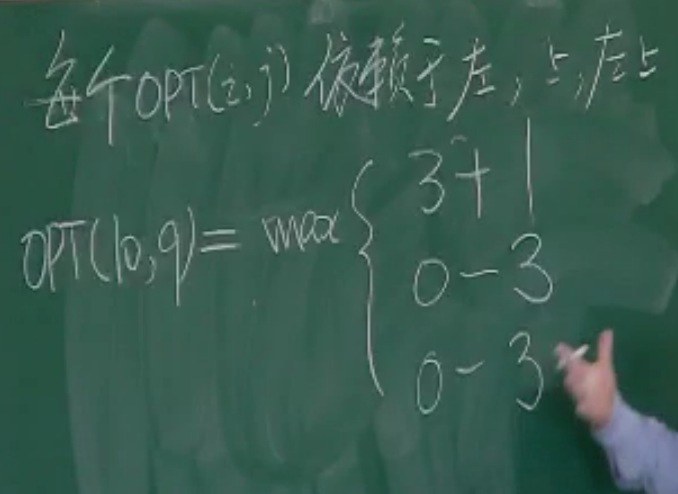 每个OPT(i,j)依赖于左,上,左上
OPT(10,9)= max { 3+1
0-3
0-3